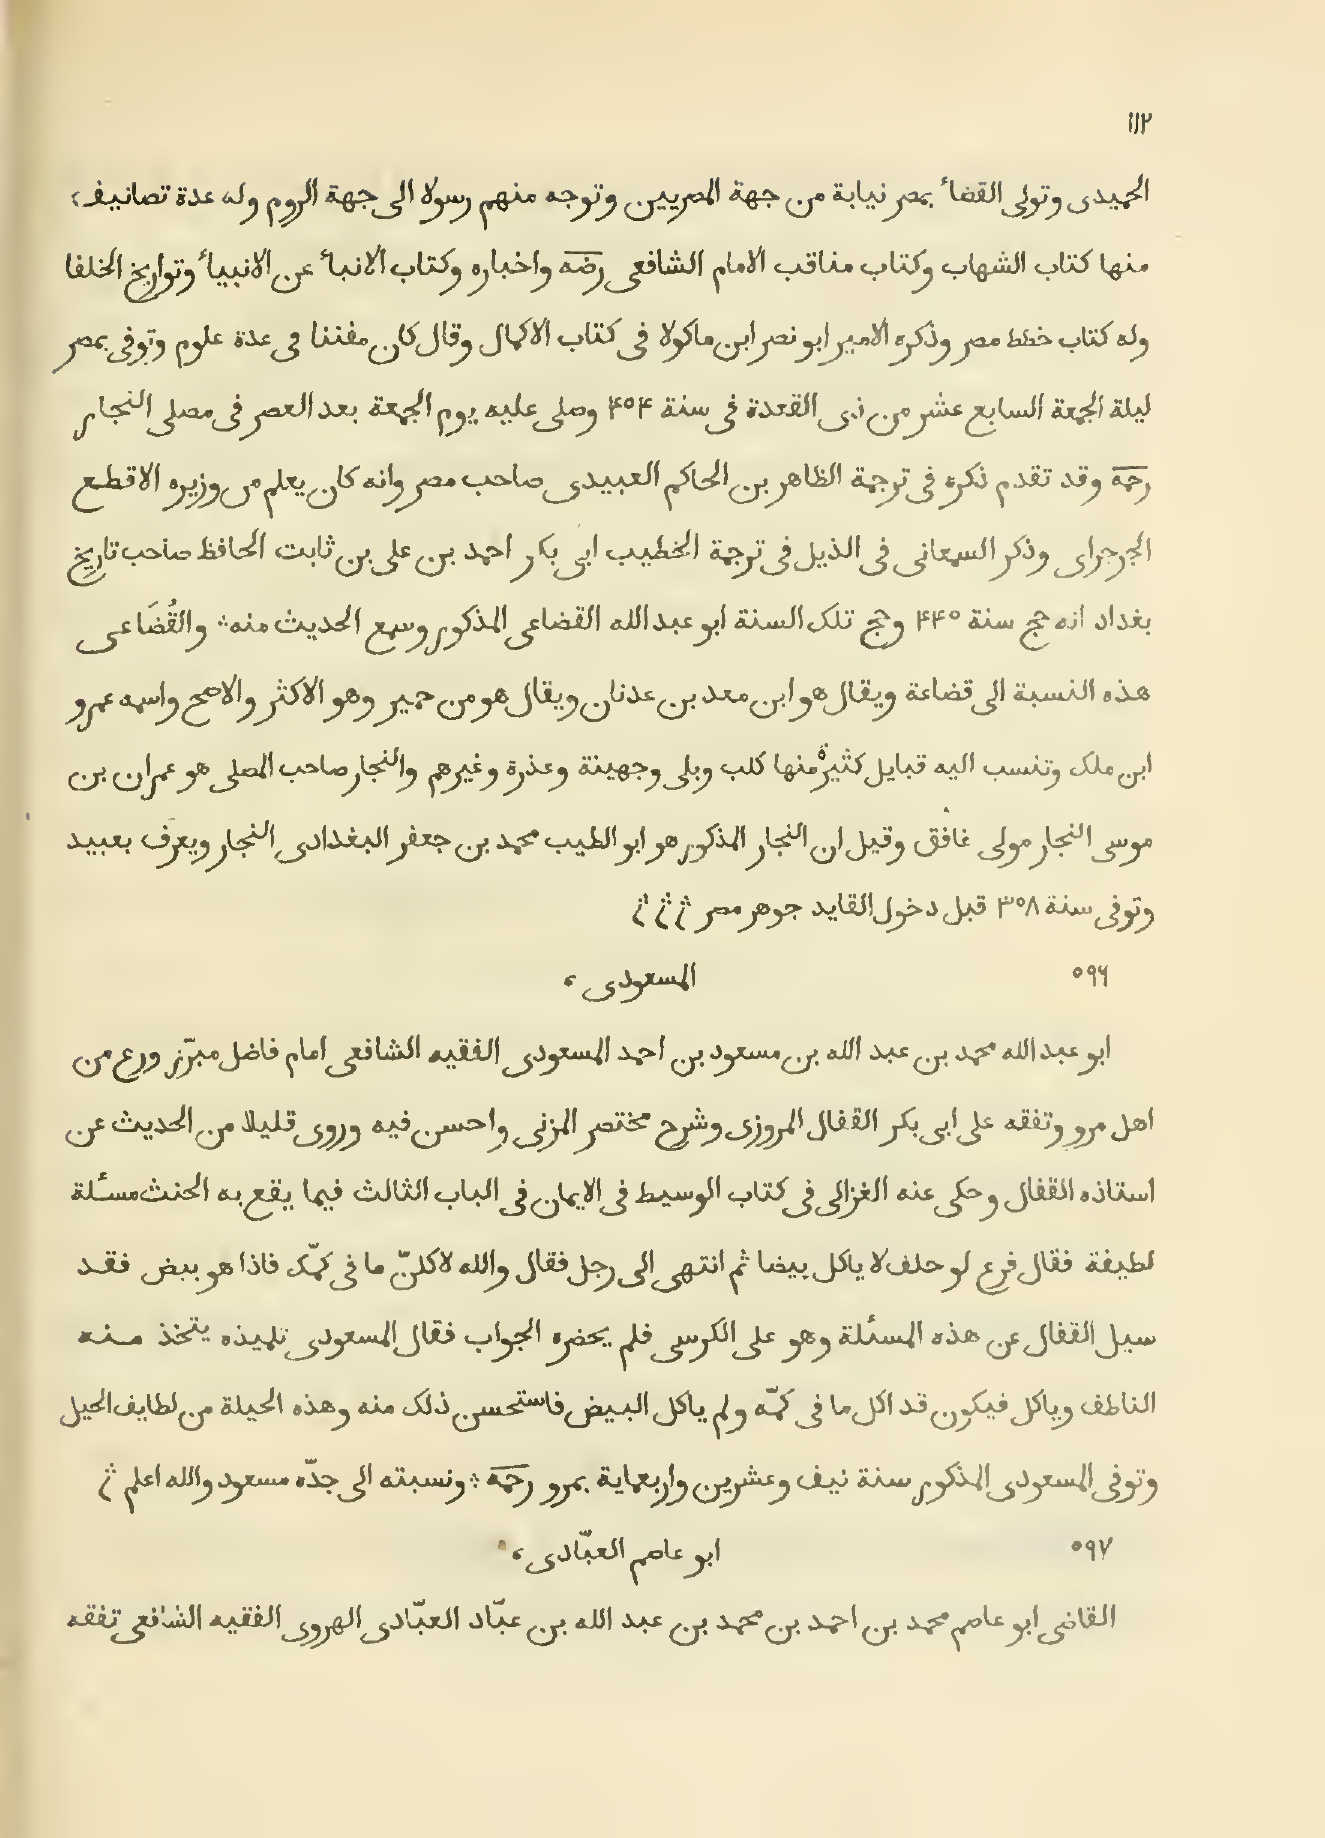 ١١٢
الحميدى وتولى القضاٴ بمصر نيابة من جهة المصريين وتوجه منهم رسولا الى جهة الروم وله عدة تصانيف،
منها كتاب الشهاب وكتاب مناقب الامام الشافعى رضه واخباره وكتاب الانباٴ عن الانبياٴ وتواريخ الخلفا
وله كتاب خطط مصر وذكره الامير ابو نصر ابن ماكولا فى كتاب الاكمال وقال كان مفننا فى عدة علوم وتوفى بمصر
ليلة الجمعة السابع عشر من ذى القعدة فى سنة ۴۵۴ وصلى عليه يوم الجمعة بعد العصر فى مصلى النجار
رحمه وقد تقدم ذكره فى ترجمة الظاهر بن الحاكم العبيدى صاحب مصر وانه كان يعلم عن وزيره الاقطع
الجرجراى وذكر السمعانى فى الذيل فى ترجمة الخطيب ابى بكر احمد بن على بن ثابت الحافظ صاحب تاريخ
بغداد انه حج سنة ۴۴۵ وحج تلك السنة ابو عبد الله القضاعى المذكور وسمع الحديث منه ∴ والقُضَاعى
هذه النسبة الى قضاعة ويقال هو ابن معد بن عدنان ويقال هو من حمير وهو الاكثر والاصح واسمه عمرو
ابن ملك وتنسب اليه قبايل كثيرة منها كلب وبلى وجهينة وعذرة وغيرهم والنجار صاحب المصلى هو عمران بن
موسى النجار مولى غافق وقيل ان النجار المذكور هو ابو الطيب محمد بن جعفر البغدادى النجار ويعرف بعبيد
وتوفى سنة ٣۵٨ قبل دخول القايد جوهر مصر ∴ ∴ ∴
۵۹۶ المسعودى،
ابو عبد الله محمد بن عبد الله بن مسعود بن احمد المسعودى الفقيه الشافعى امام فاضل مبرّز ورع من
اهل مرو وتفقه على ابى بكر القفال المروزى وشرح مختصر المزنى واحسن فيه وروى قليلا من الحديث عن
استاذه القفال وحكى عنه الغزالى فى كتاب الوسيط فى الايمان فى الباب الثالث فيما يقع به الحنث مسئلة
لطيفة فقال فرع لو حلف لا ياكل بيضا ثم انتهى الى رجل فقال والله لاكلنّ ما فى كمّك فاذا هو بيض فقد
سيل القفال عن هذه المسئلة وهو على الكرسى فلم يحضره الجواب فقال المسعودى تلميذه يتخذ منه
الناطف وياكل فيكون قد اكل ما فى كمّه ولم ياكل البيض فاستحسن ذلك منه وهذه الحيلة من لطايف الحيل
وتوفى المسعودى المذكور سنة نيف وعشرين واربعماية بمرو رحمه ∴ ونسبته الى جدّه مسعود والله اعلم ∴
۵۹۷ ابو عاصم العبّادى،
القاضى ابو عاصم محمد بن احمد بن محمد بن عبد الله بن عبّاد العبّادى الهروى الفقيه الشافعى تفقه